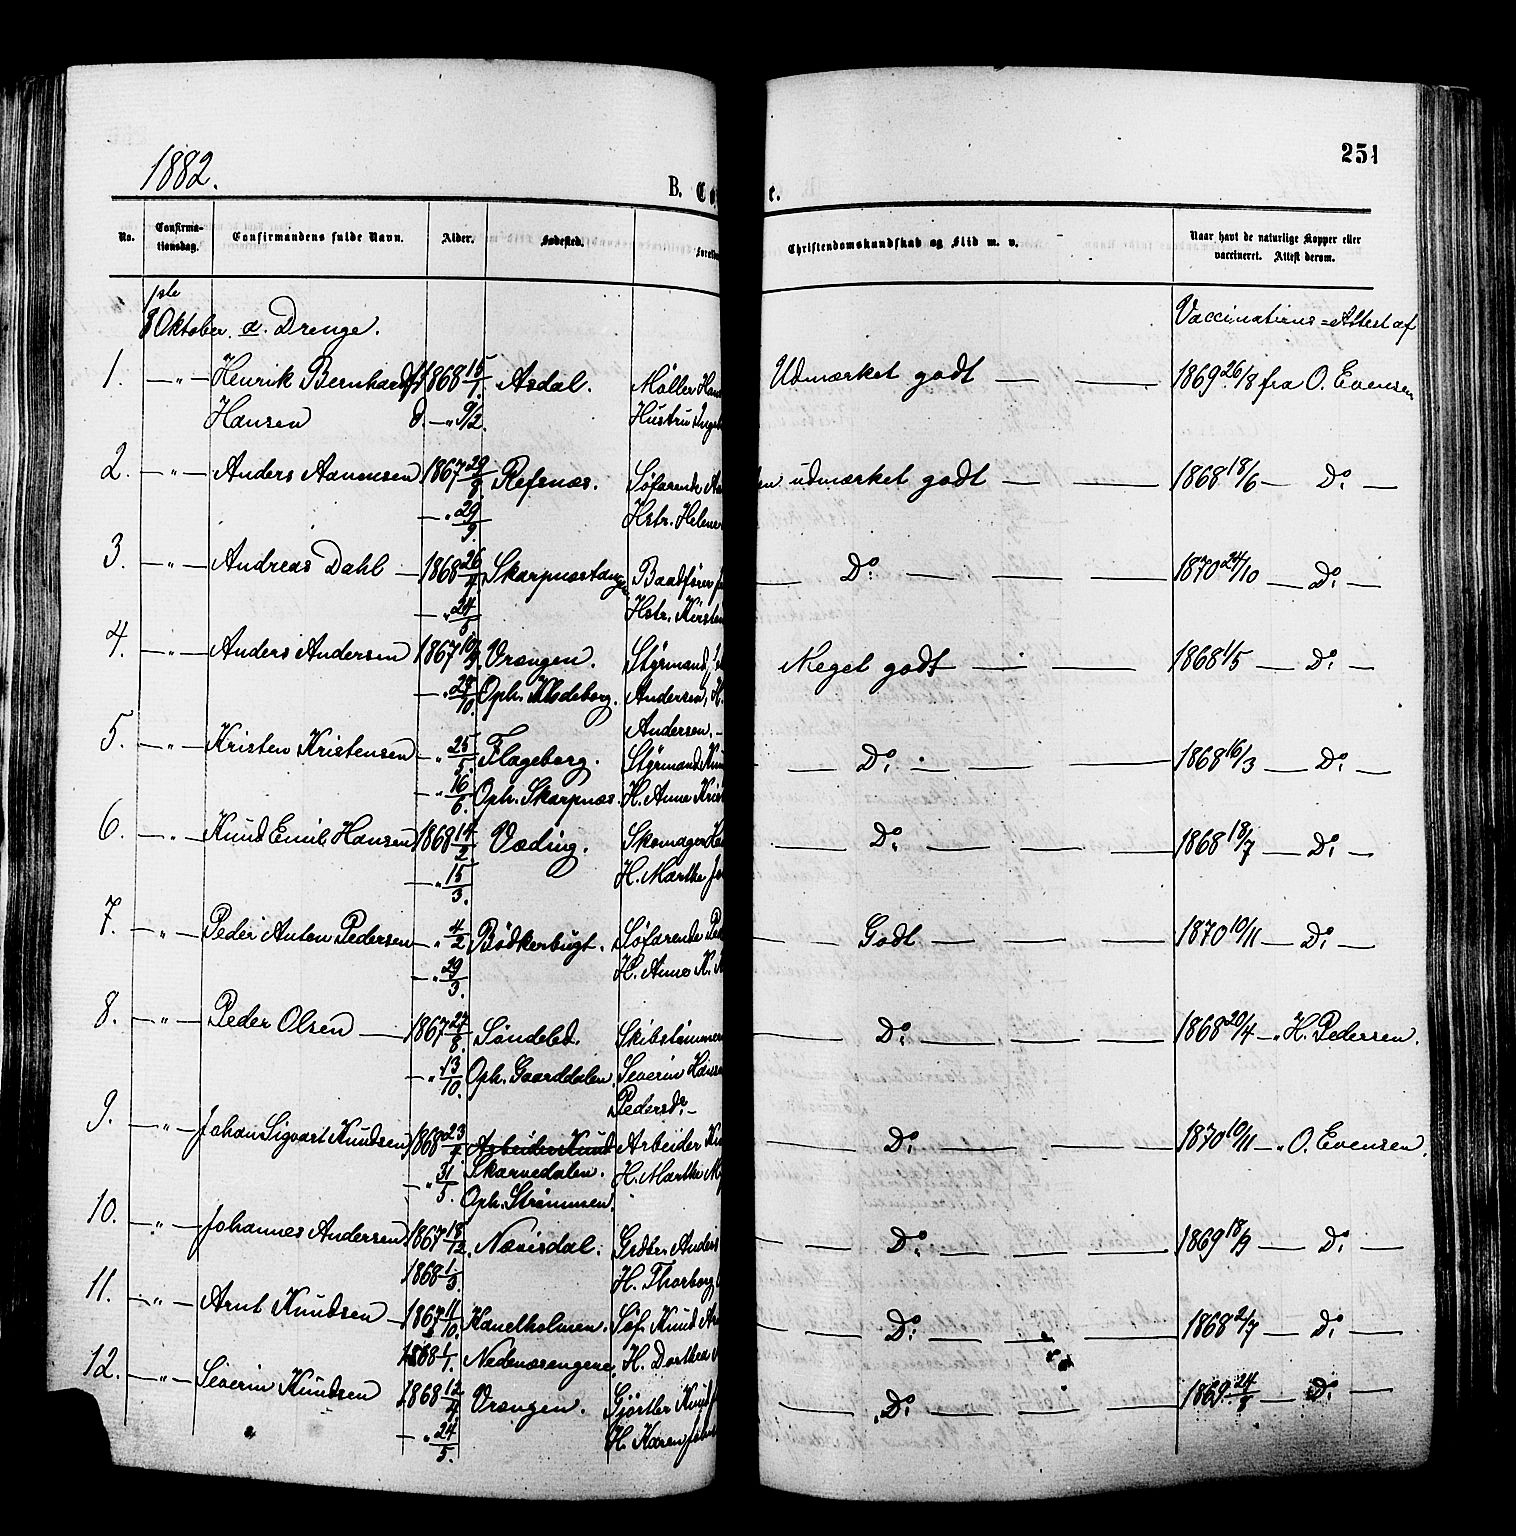 251
1882.
B. Co
e.
No.
Confirma-
tionsdag.
Confirmandens fulde Navn.
Alder.
Fødested.
Foreldre
Christendomskundskab og Flid m. v.
Naar havt de naturlige Kopper eller
vaccineret. Attest derom.
1ste
Oktober. a. Drenge.
Vaccinations=Attest af
1. —"— Henrik Bernhard 1868 15/1. Asdal. Møller Han
Udmærket godt — — 1869 26/8 fra O. Evensen
Hansen d. —"— 9/2. Hustru Inge
2. —"— Anders Aanonsen 1867 29/8. Refsnæs. Søfarende Aa
udmærket godt — — 1868 18/6 — Do —
—"— 29/9. Hstr. Helene
3. —"— Andreas Dahl — 1868 26/4 Skarpnæstangen Baadfører
Do — — — 1870 24/10 — Do —
—"— 24/5 Hstr. Kirsten
4. —"— Anders Andersen 1867 10/9 Vrængen. Styrmand,
Meget godt — — — 1868 1/5 — Do —
—"— 28/10. Oph. Flødeborg. Andersen, H.
Andersen. —
5. —"— Kristen Kristensen —"— 25/5. Flageborg. Styrmand Knu
— Do — — — 1868 16/3 — Do —
—"— 16/6. Oph. Skarpnæs. H. Anne Krist
6. —"— Knud Emil Hansen 1868 14/2 Væding. Skomager Ha
Do — — — 1868 18/7 — Do —
—"— 15/3. H. Marthe Jo
7. —"— Peder Anton Pedersen —"— 4/2 Bødkerbugt. Søfarende Pe
— Godt — — — 1870 10/11 — Do —
—"— 29/3. H. Anne K.
8. —"— Peder Olsen — 1867 27/8. Søndeled. Skibstømmer
— Do — — — 1868 20/4 —" H. Pedersen.
—"— 13/10. Oph. Gaarddalen. Severin Hanse
Pedersdr. —
9. —"— Johan Sigvart Knudsen 1868 23/4 Arbeider Knud Arbeider Kn
— Do — — — 1870 10/11 " O. Evensen.
—"— 31/5. Skarvedalen. H. Marthe M
Oph. Strømmen.
10. —"— Johannes Andersen 1867 18/12. Nævisdal. Grdbr. Anders
— Do — — — 1869 18/9 — Do —
1868 1/3 H. Thorborg
11. —"— Arnt Knudsen — 1867 11/10. Kanelholmen. Søf. Knud
— Do — — — 1868 2/7 — Do —
1868 1/1. Nedenæsengene. H. Dorthea
12. —"— Severin Knudsen 1868 12/4 Vrængen. Gjørtler Knud
— Do — — — 1869 24/8 — Do —
—"— 24/5. H. Karen Joh